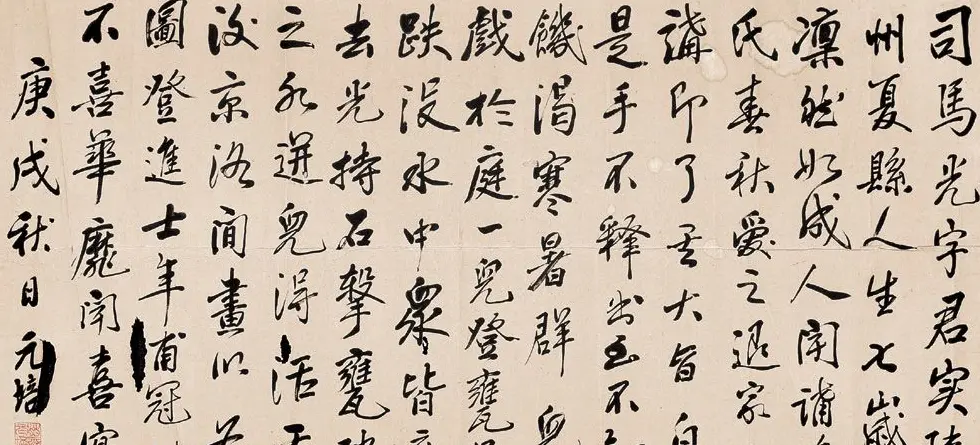 司馬光字君实陕
州夏縣人生七歲
凛然如成人闻講
氏春秋爱之退家
講即了其大旨自
是手不釋书至不
饑渴寒暑群
戲於庭一兒登甕
跌没水中眾皆
去光持石擊甕破
之水迸兒得活
没京洛间畫以
圖登進士年甫冠
不喜華靡闻喜宴
庚戌秋日元培